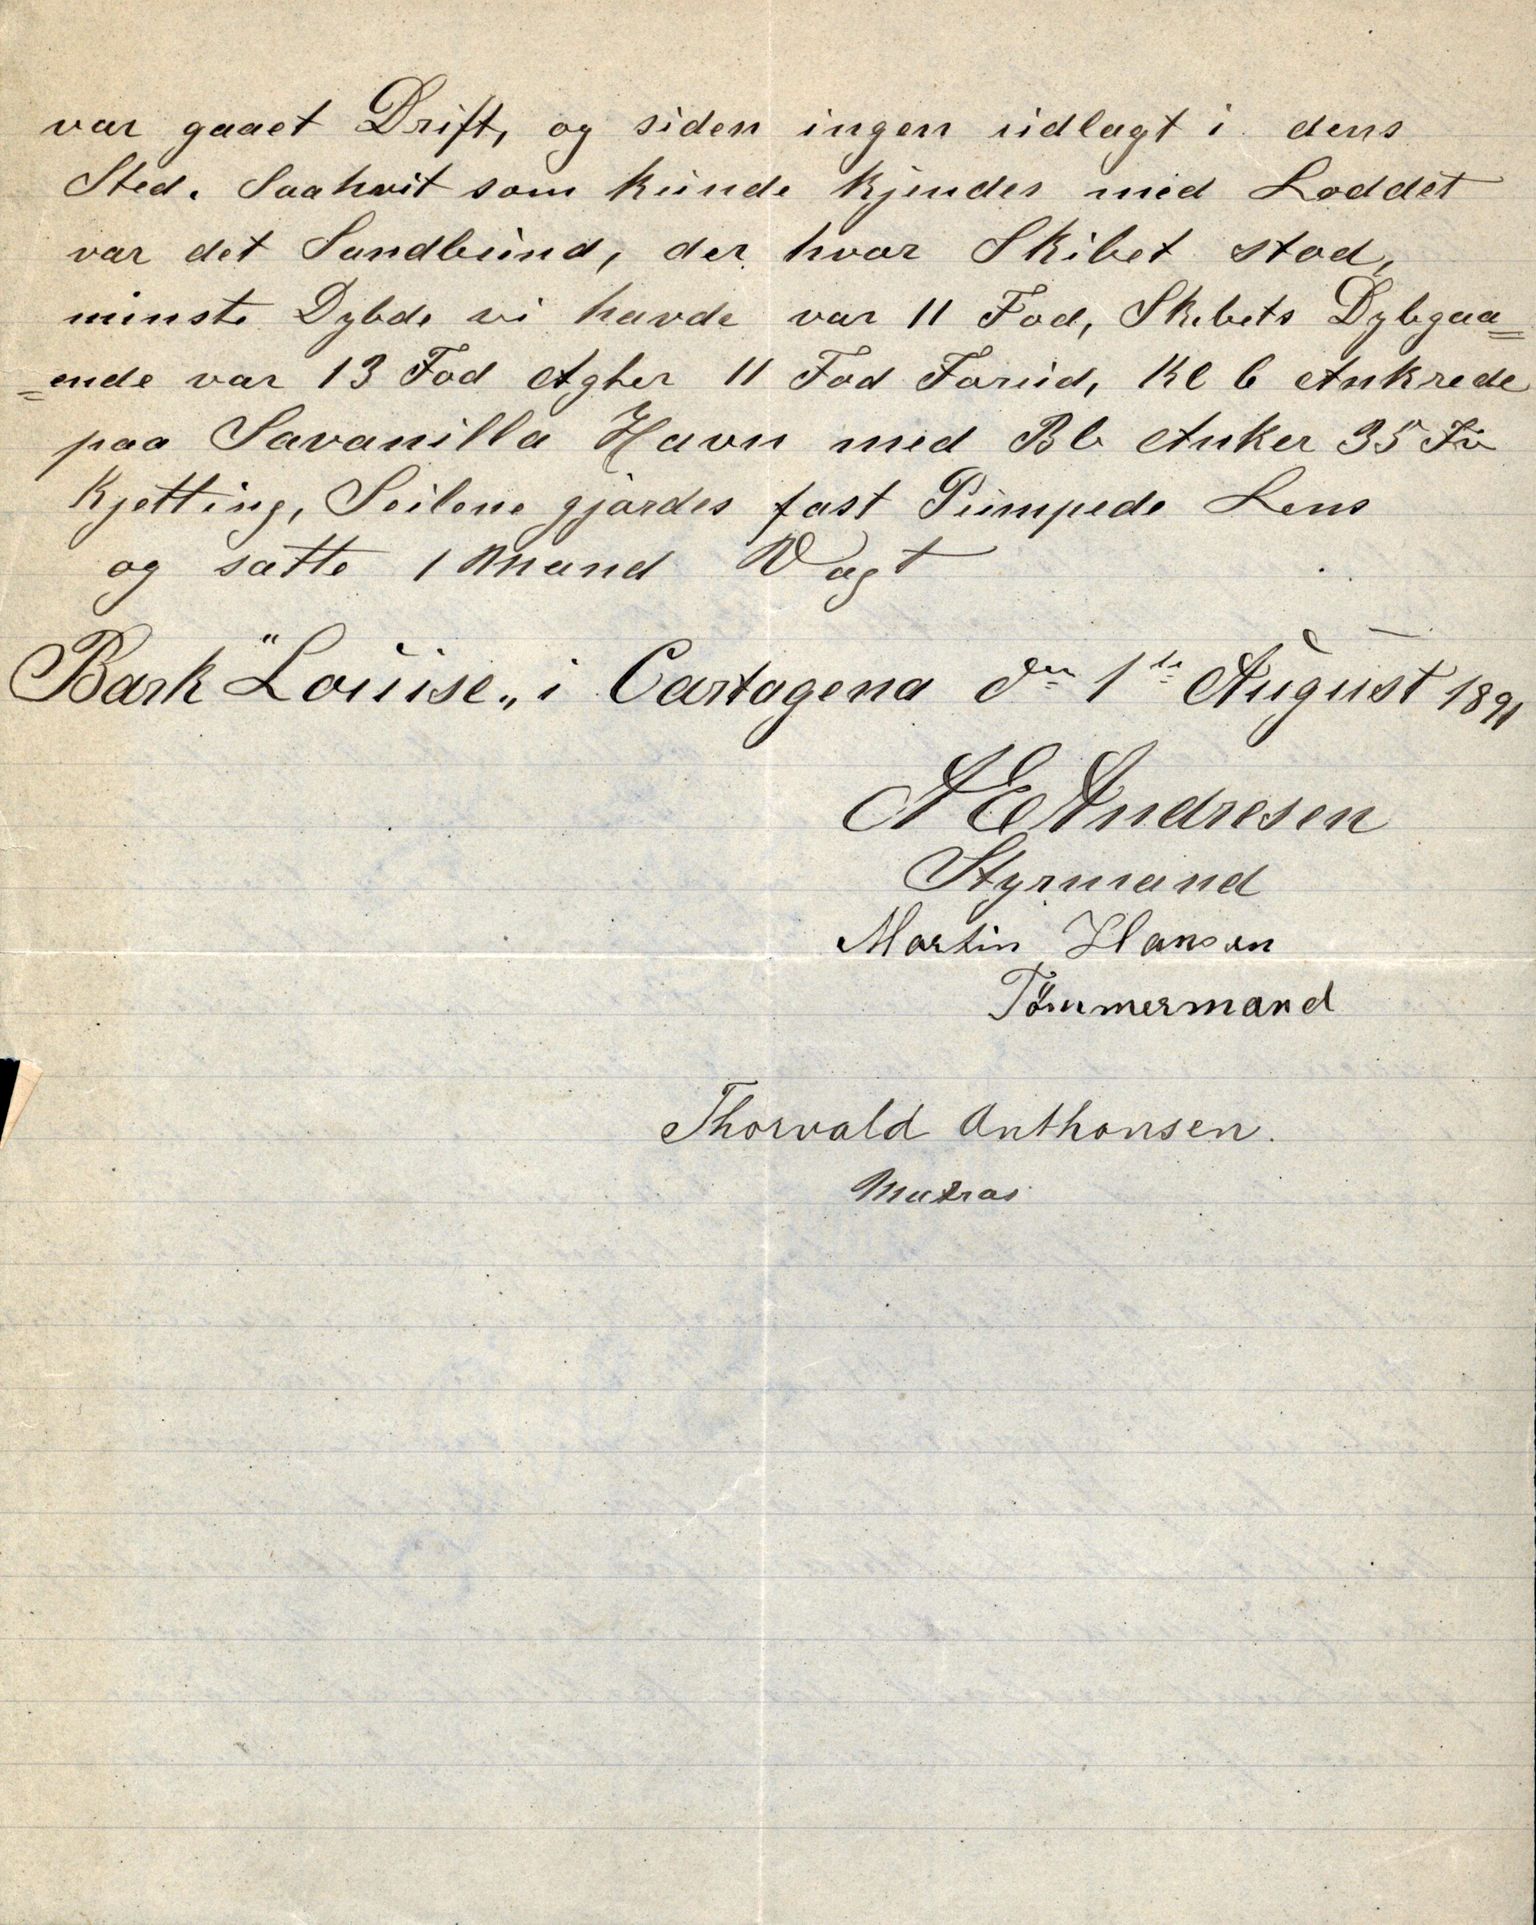 var gaaet Drift, og siden ingen udlagt i dens
Sted. Saahvit som kunde kjendes med Loddet
var det Sandbund, der hvor Skibet stod,
minste Dybde vi havde var 11 Fod, Skibets Dybgaa=
=ende var 13 Fod Agter 11 Fod Forud, Kl 6 Ankrede
paa Savanilla Havn med Bb Anker 35 Fv
Kjetting, Seilene gjordes fast Pumpede Lens
og satte 1 Mand Vagt
Bark "Louise„ i Cartagena dn 1te August 1891
A E Andresen
Styrmand
Martin Hansen
Tömmermand
Thorvald Anthonsen.
Matros